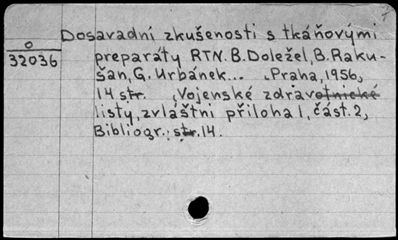 Dosavadní zkušenosti s tkáňovými
o
32036
preparáty RTN. B. Doležel, B. Raku-
šan, G. Urbánek... Praha, 1956,
14 str. Vojenské zdravotnické
listy, zvláštní příloha 1, část. 2,
Bibliogr.: str. 14.